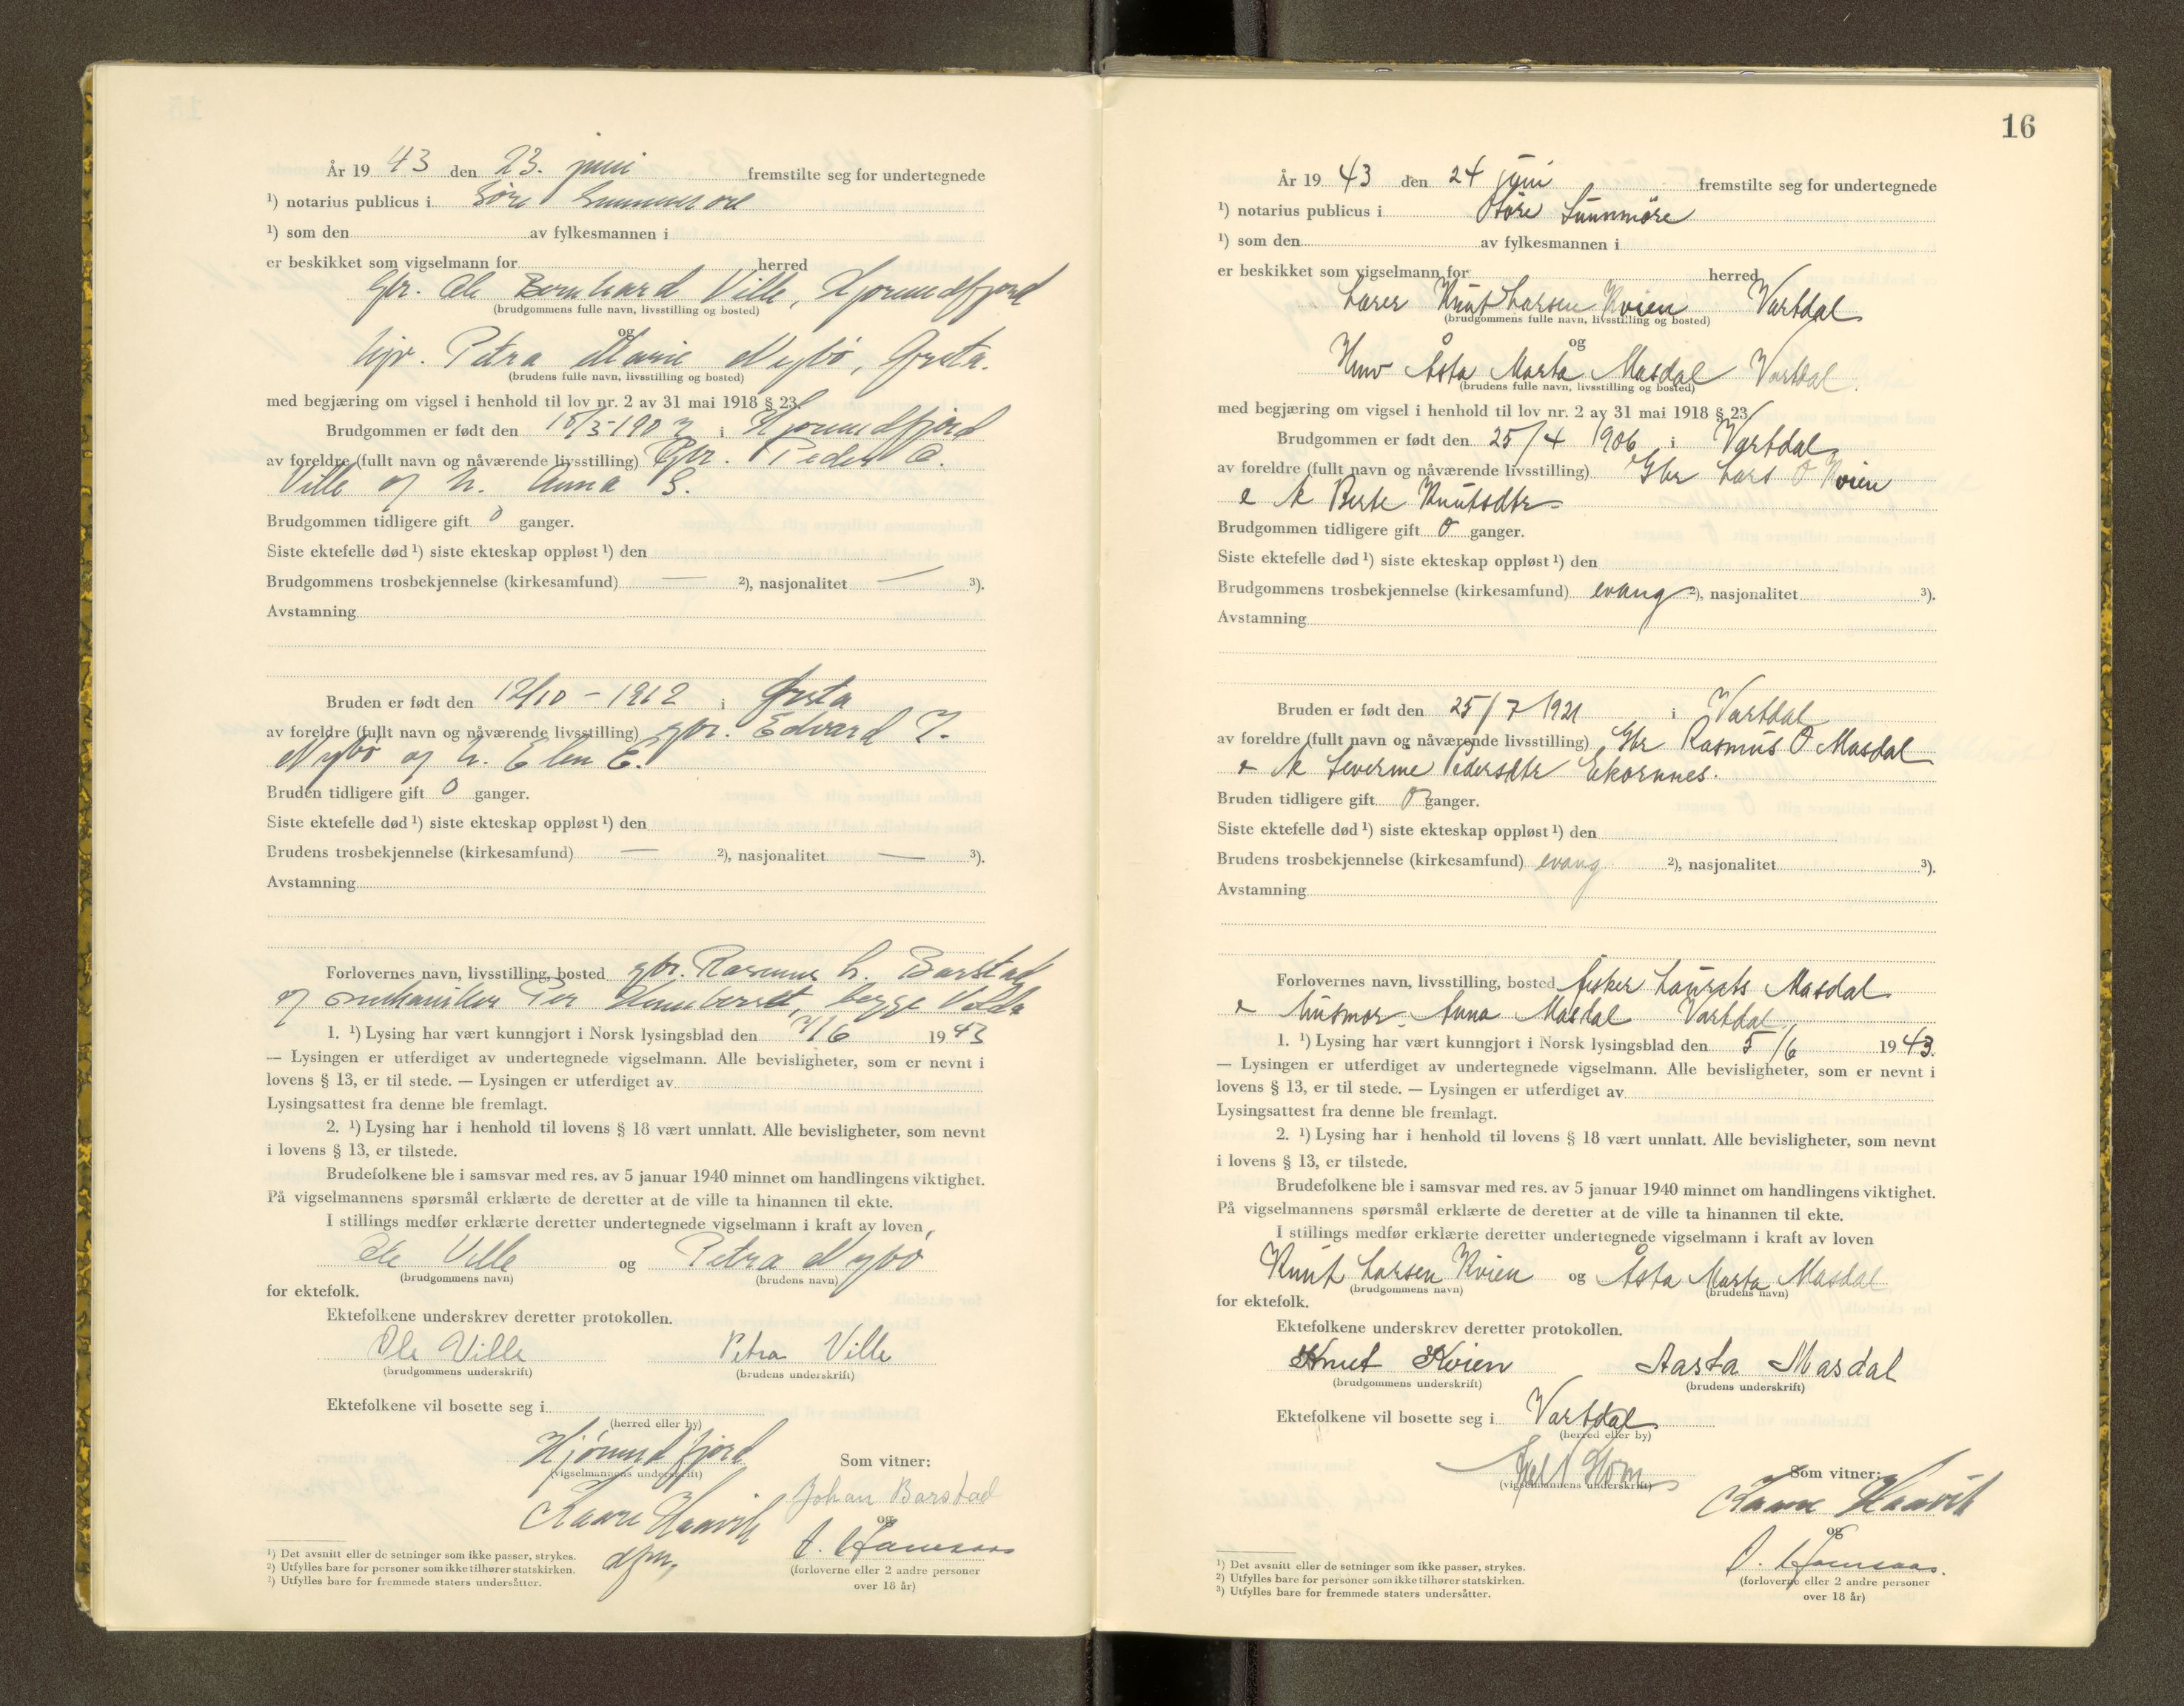 År 19 43 den 23. juni fremstilte seg for undertegnede
¹) notarius publicus i Søre Sunnmøre
¹) som den av fylkesmannen i
er beskikket som vigselmann for herred
Gbr. Ole Bernhard Ville, Hjørundfjord
(brudgommens fulle navn, livsstilling og bosted)
og
hjv. Petra Marie Nybö, Ørsta.
(brudens fulle navn, livsstilling og bosted)
med begjæring om vigsel i henhold til lov nr. 2 av 31 mai 1918 § 23.
Brudgommen er født den i Hjørundfjord
av foreldre (fullt navn og nåværende livsstilling) Gbr. Peder O.
Ville og h. Anna S.
Brudgommen tidligere gift 0 ganger.
Siste ektefelle død ¹) siste ekteskap oppløst ¹) den
Brudgommens trosbekjennelse (kirkesamfund) — ²), nasjonalitet — ³).
Avstamning
Bruden er født den 12/10 - 1912 i Ørsta
av foreldre (fullt navn og nåværende livsstilling) gbr. Edvard I.
Nybö og h. Elen E.
Bruden tidligere gift 0 ganger.
Siste ektefelle død ¹) siste ekteskap oppløst ¹) den
Brudens trosbekjennelse (kirkesamfund) — ²), nasjonalitet — ³).
Avstamning
Forlovernes navn, livsstilling, bosted gbr. Rasmus L. Barstad
og mekaniker Per Humberset, begge Volda
1. ¹) Lysing har vært kunngjort i Norsk lysingsblad den 7/6 19 43
— Lysingen er utferdiget av undertegnede vigselmann. Alle bevisligheter, som er nevnt i
lovens § 13, er til stede. — Lysingen er utferdiget av
Lysingsattest fra denne ble fremlagt.
2. ¹) Lysing har i henhold til lovens § 18 vært unnlatt. Alle bevisligheter, som nevnt
i lovens § 13, er tilstede.
Brudefolkene ble i samsvar med res. av 5 januar 1940 minnet om handlingens viktighet.
På vigselmannens spørsmål erklærte de deretter at de ville ta hinannen til ekte.
I stillings medfør erklærte deretter undertegnede vigselmann i kraft av loven
Ole Ville og Petra Nybö
(brudgommens navn) (brudens navn)
for ektefolk.
Ektefolkene underskrev deretter protokollen.
Ole Ville Petra Ville
(brudgommens underskrift) (brudens underskrift)
Ektefolkene vil bosette seg i
(herred eller by)
Hjörundfjord
(vigselmannens underskrift) Som vitner:
Kaare Haavik Johan Barstad
og
dfm.
(forloverne eller 2 andre personer
over 18 år)
¹) Det avsnitt eller de setninger som ikke passer, strykes.
²) Utfylles bare for personer som ikke tilhører statskirken.
³) Utfylles bare for fremmede staters undersåtter.
16
År 19 43 den 24 juni fremstilte seg for undertegnede
¹) notarius publicus i Söre Sunnmöre
¹) som den av fylkesmannen i
er beskikket som vigselmann for herred
Lærer Knut Larsen Kvien Vartdal
(brudgommens fulle navn, livsstilling og bosted)
og
Hmv Åsta Marta Masdal Vartdal.
(brudens fulle navn, livsstilling og bosted)
med begjæring om vigsel i henhold til lov nr. 2 av 31 mai 1918 § 23
Brudgommen er født den 25/4 1906 i Vartdal
av foreldre (fullt navn og nåværende livsstilling) Gbr Lars O Kvien
e k Berte Knutsdtr
Brudgommen tidligere gift 0 ganger.
Siste ektefelle død ¹) siste ekteskap oppløst ¹) den
Brudgommens trosbekjennelse (kirkesamfund) evang ²), nasjonalitet ³).
Avstamning
Bruden er født den 25/7 1921 i Vartdal
av foreldre (fullt navn og nåværende livsstilling) Gbr Rasmus O Masdal
e k Severine Pedersdtr Ekornnes.
Bruden tidligere gift 0 ganger.
Siste ektefelle død ¹) siste ekteskap oppløst ¹) den
Brudens trosbekjennelse (kirkesamfund) evang ²), nasjonalitet ³).
Avstamning
Forlovernes navn, livsstilling, bosted fisker Laurits Masdal
e husmor Anna Masdal Vartdal
1. ¹) Lysing har vært kunngjort i Norsk lysingsblad den 5/6 19 43.
— Lysingen er utferdiget av undertegnede vigselmann. Alle bevisligheter, som er nevnt i
lovens § 13, er til stede. — Lysingen er utferdiget av
Lysingsattest fra denne ble fremlagt.
2. ¹) Lysing har i henhold til lovens § 18 vært unnlatt. Alle bevisligheter, som nevnt
i lovens § 13, er tilstede.
Brudefolkene ble i samsvar med res. av 5 januar 1940 minnet om handlingens viktighet.
På vigselmannens spørsmål erklærte de deretter at de ville ta hinannen til ekte.
I stillings medfør erklærte deretter undertegnede vigselmann i kraft av loven
Knut Larsen Kvien og Åsta Marta Masdal
(brudgommens navn) (brudens navn)
for ektefolk.
Ektefolkene underskrev deretter protokollen.
Knut Kvien Aasta Masdal
(brudgommens underskrift) (brudens underskrift)
Ektefolkene vil bosette seg i Vartdal
(herred eller by)
Som vitner:
(vigselmannens underskrift)
Kaare Haavik
og
(forloverne eller 2 andre personer
over 18 år)
¹) Det avsnitt eller de setninger som ikke passer, strykes.
²) Utfylles bare for personer som ikke tilhører statskirken.
³) Utfylles bare for fremmede staters undersåtter.